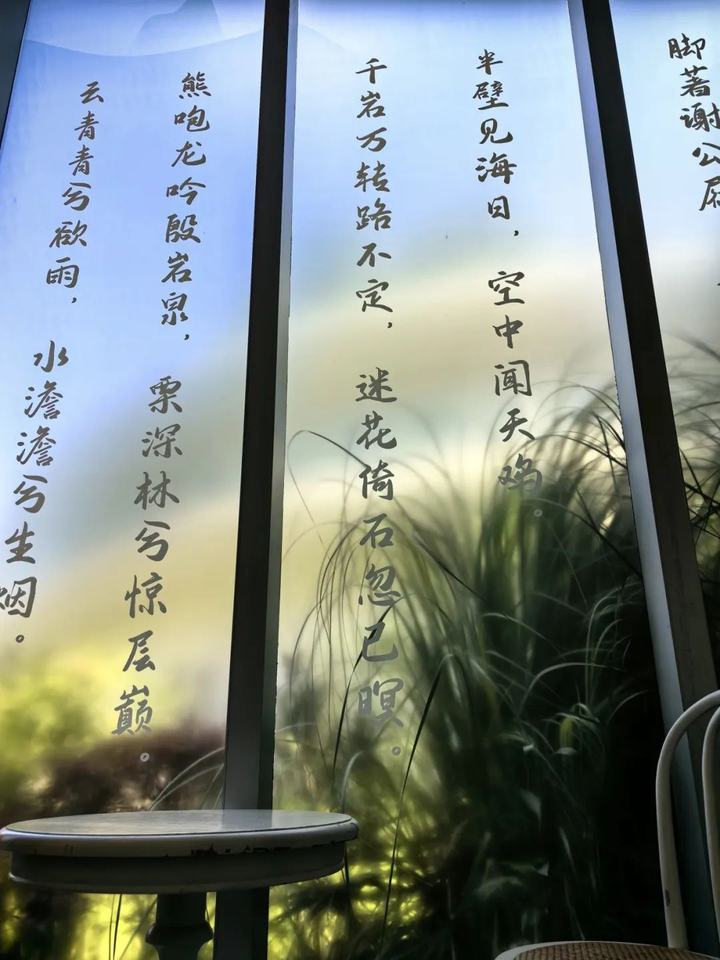 脚著谢公屐
半壁见海日，空中闻天鸡。
千岩万转路不定，迷花倚石忽已暝。
熊咆龙吟殷岩泉，栗深林兮惊层巅。
云青青兮欲雨，水澹澹兮生烟。